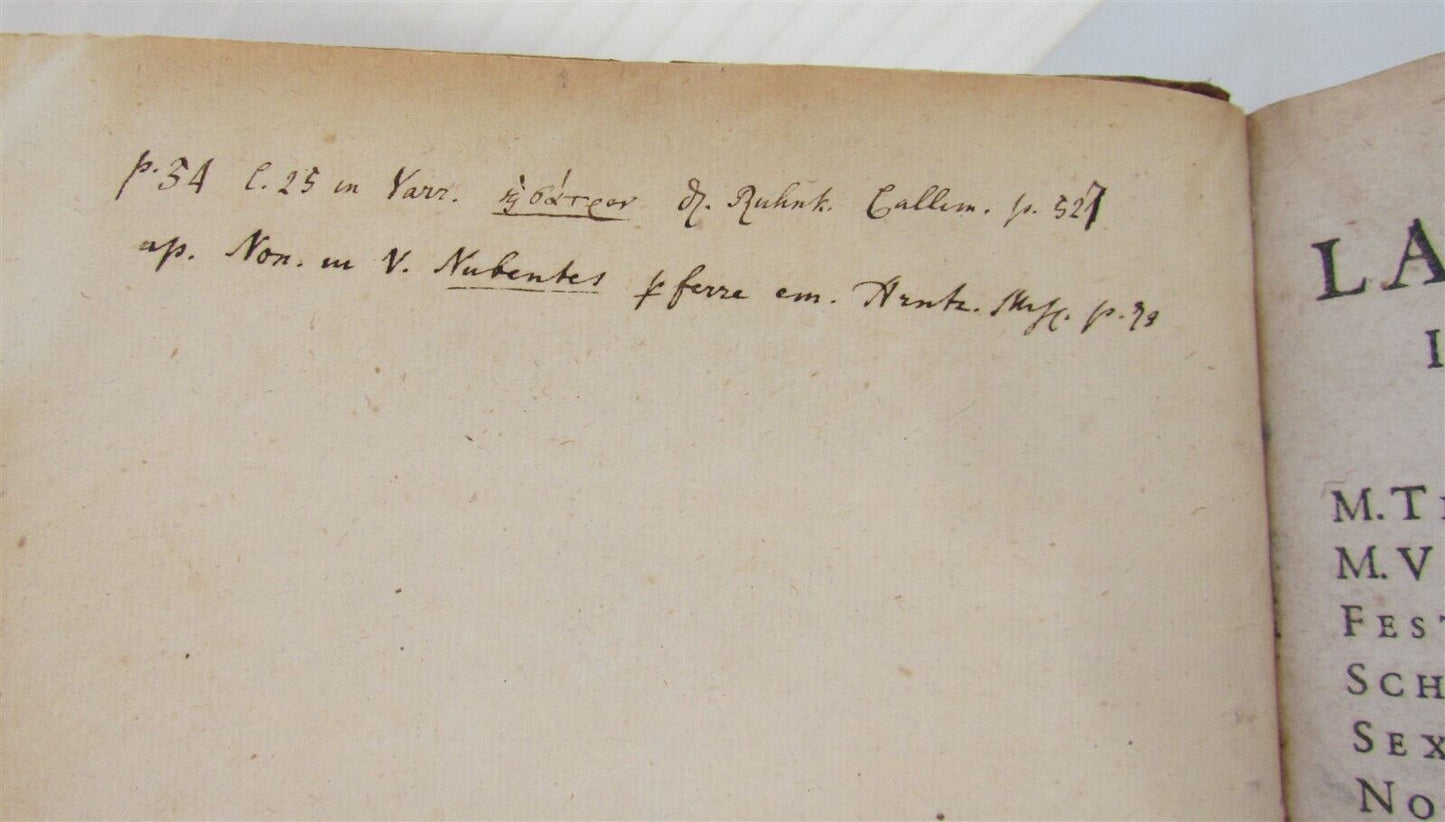 p. 34 l. 25 in Varr. ϗ σάτρον Ruhnk. Callim. p. 527
ap. Non. in V. Nubentes ferre em. Arntz. p. 78
LA
I
M. T
M. V
FEST
SCH
SEX
NO